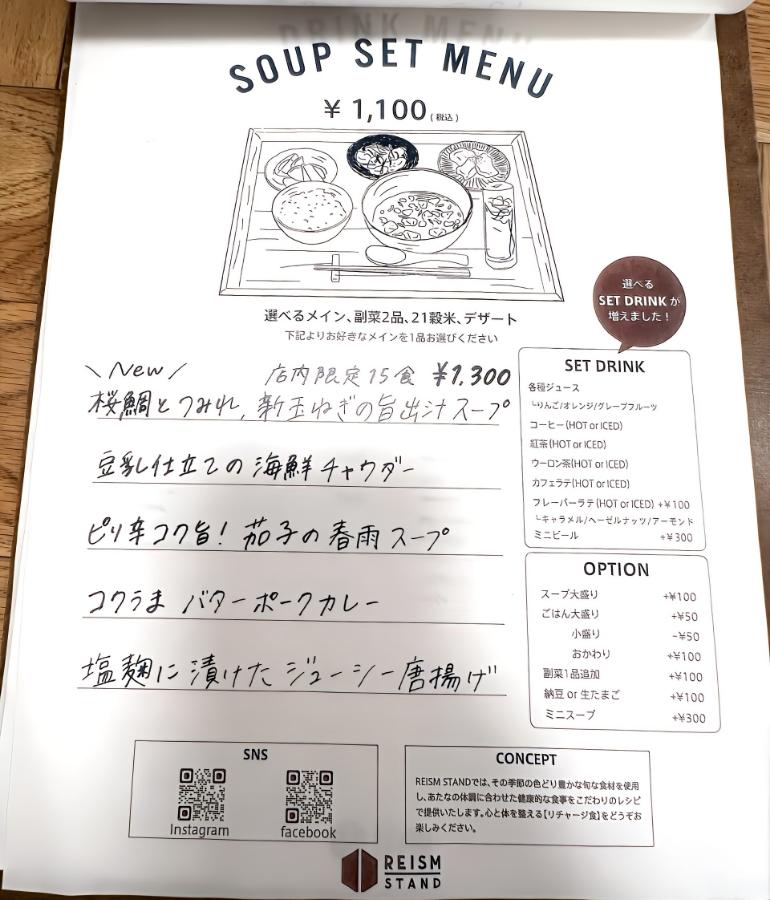 SOUP SET MENU
¥ 1,100 (税込)
選べるメイン、副菜2品、21穀米、デザート
下記よりお好きなメインを1品お選びください
選べる
SET DRINK が
増えました！
\ New /
店内限定15食 ¥1,300
桜鯛とつみれ、新玉ねぎの旨出汁スープ
豆乳仕立ての海鮮チャウダー
ピリ辛コク旨！茄子の春雨スープ
コクうま バターポークカレー
塩麹に漬けたジューシー唐揚げ
SET DRINK
各種ジュース
└りんご/オレンジ/グレープフルーツ
コーヒー(HOT or ICED)
紅茶(HOT or ICED)
ウーロン茶(HOT or ICED)
カフェラテ(HOT or ICED)
フレーバーラテ(HOT or ICED) +¥100
└キャラメル/ヘーゼルナッツ/アーモンド
ミニビール +¥300
OPTION
スープ大盛り +¥100
ごはん大盛り +¥50
小盛り -¥50
おかわり +¥100
副菜1品追加 +¥100
納豆 or 生たまご +¥100
ミニスープ +¥300
SNS
Instagram
facebook
CONCEPT
REISM STANDでは、その季節の色どり豊かな旬な食材を使用
し、あたなの体調に合わせた健康的な食事をこだわりのレシピ
で提供いたします。心と体を整える【リチャージ食】をどうぞお
楽しみください。
REISM
STAND